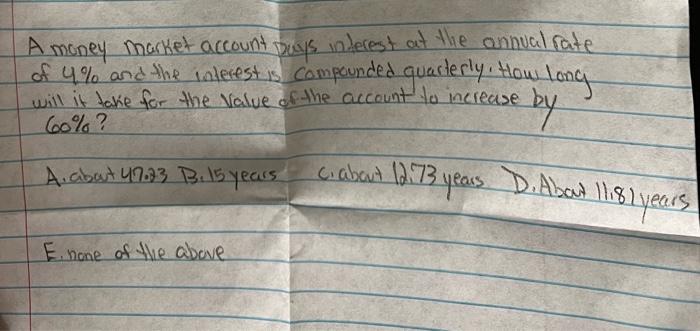 A money market account pays interest at the annual rate
of 4% and the interest is compounded quarterly. How long
will it take for the value of the account to increase by
60%?
A. about 47.23 B. 15 years C. about 12.73 years D. About 11.81 years
E. none of the above